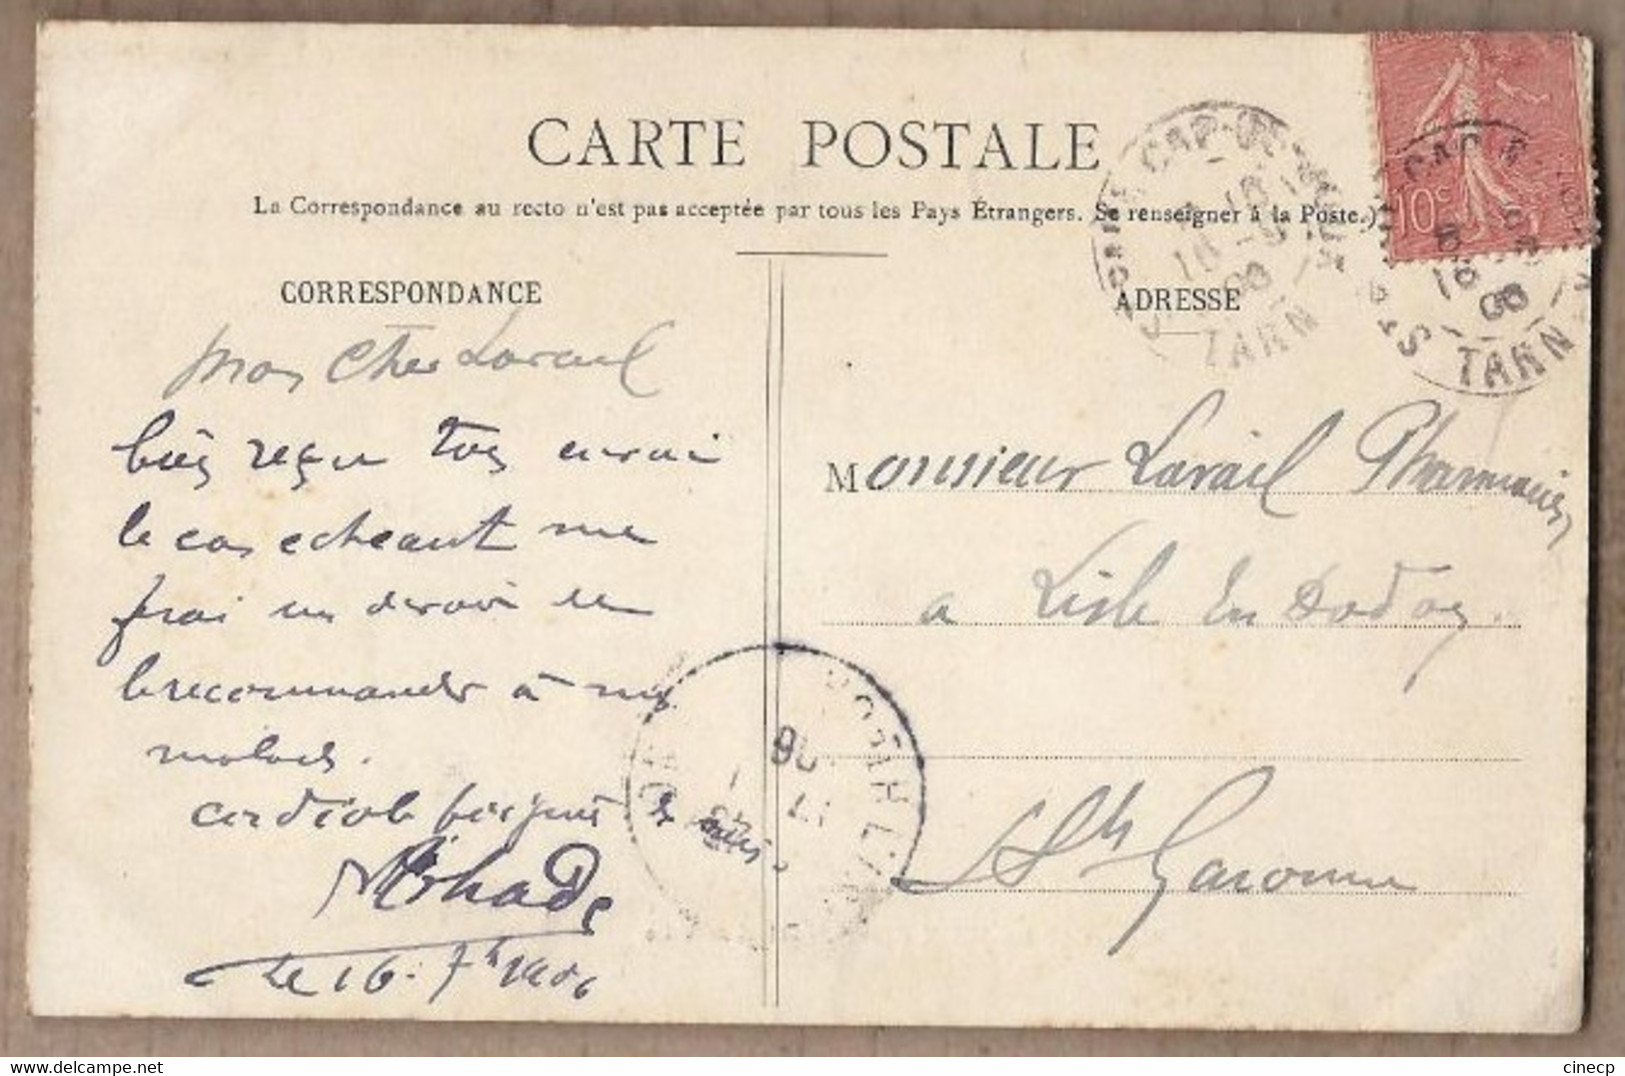 CARTE POSTALE
La Correspondance au recto n'est pas acceptée par tous les Pays Étrangers. Se renseigner à la Poste.)
CORRESPONDANCE
Mon Cher Lavail
bien reçu ton envoi
le cas echeant me
ferai un devoir de
le recommander à mes
malades.
cordiale poignée de
Le 16 7h 1906
ADRESSE
Monsieur Lavail Pharmacien
a Lisle En Dodon
Hte Garonne
10c
TARN
TARN
cinecp